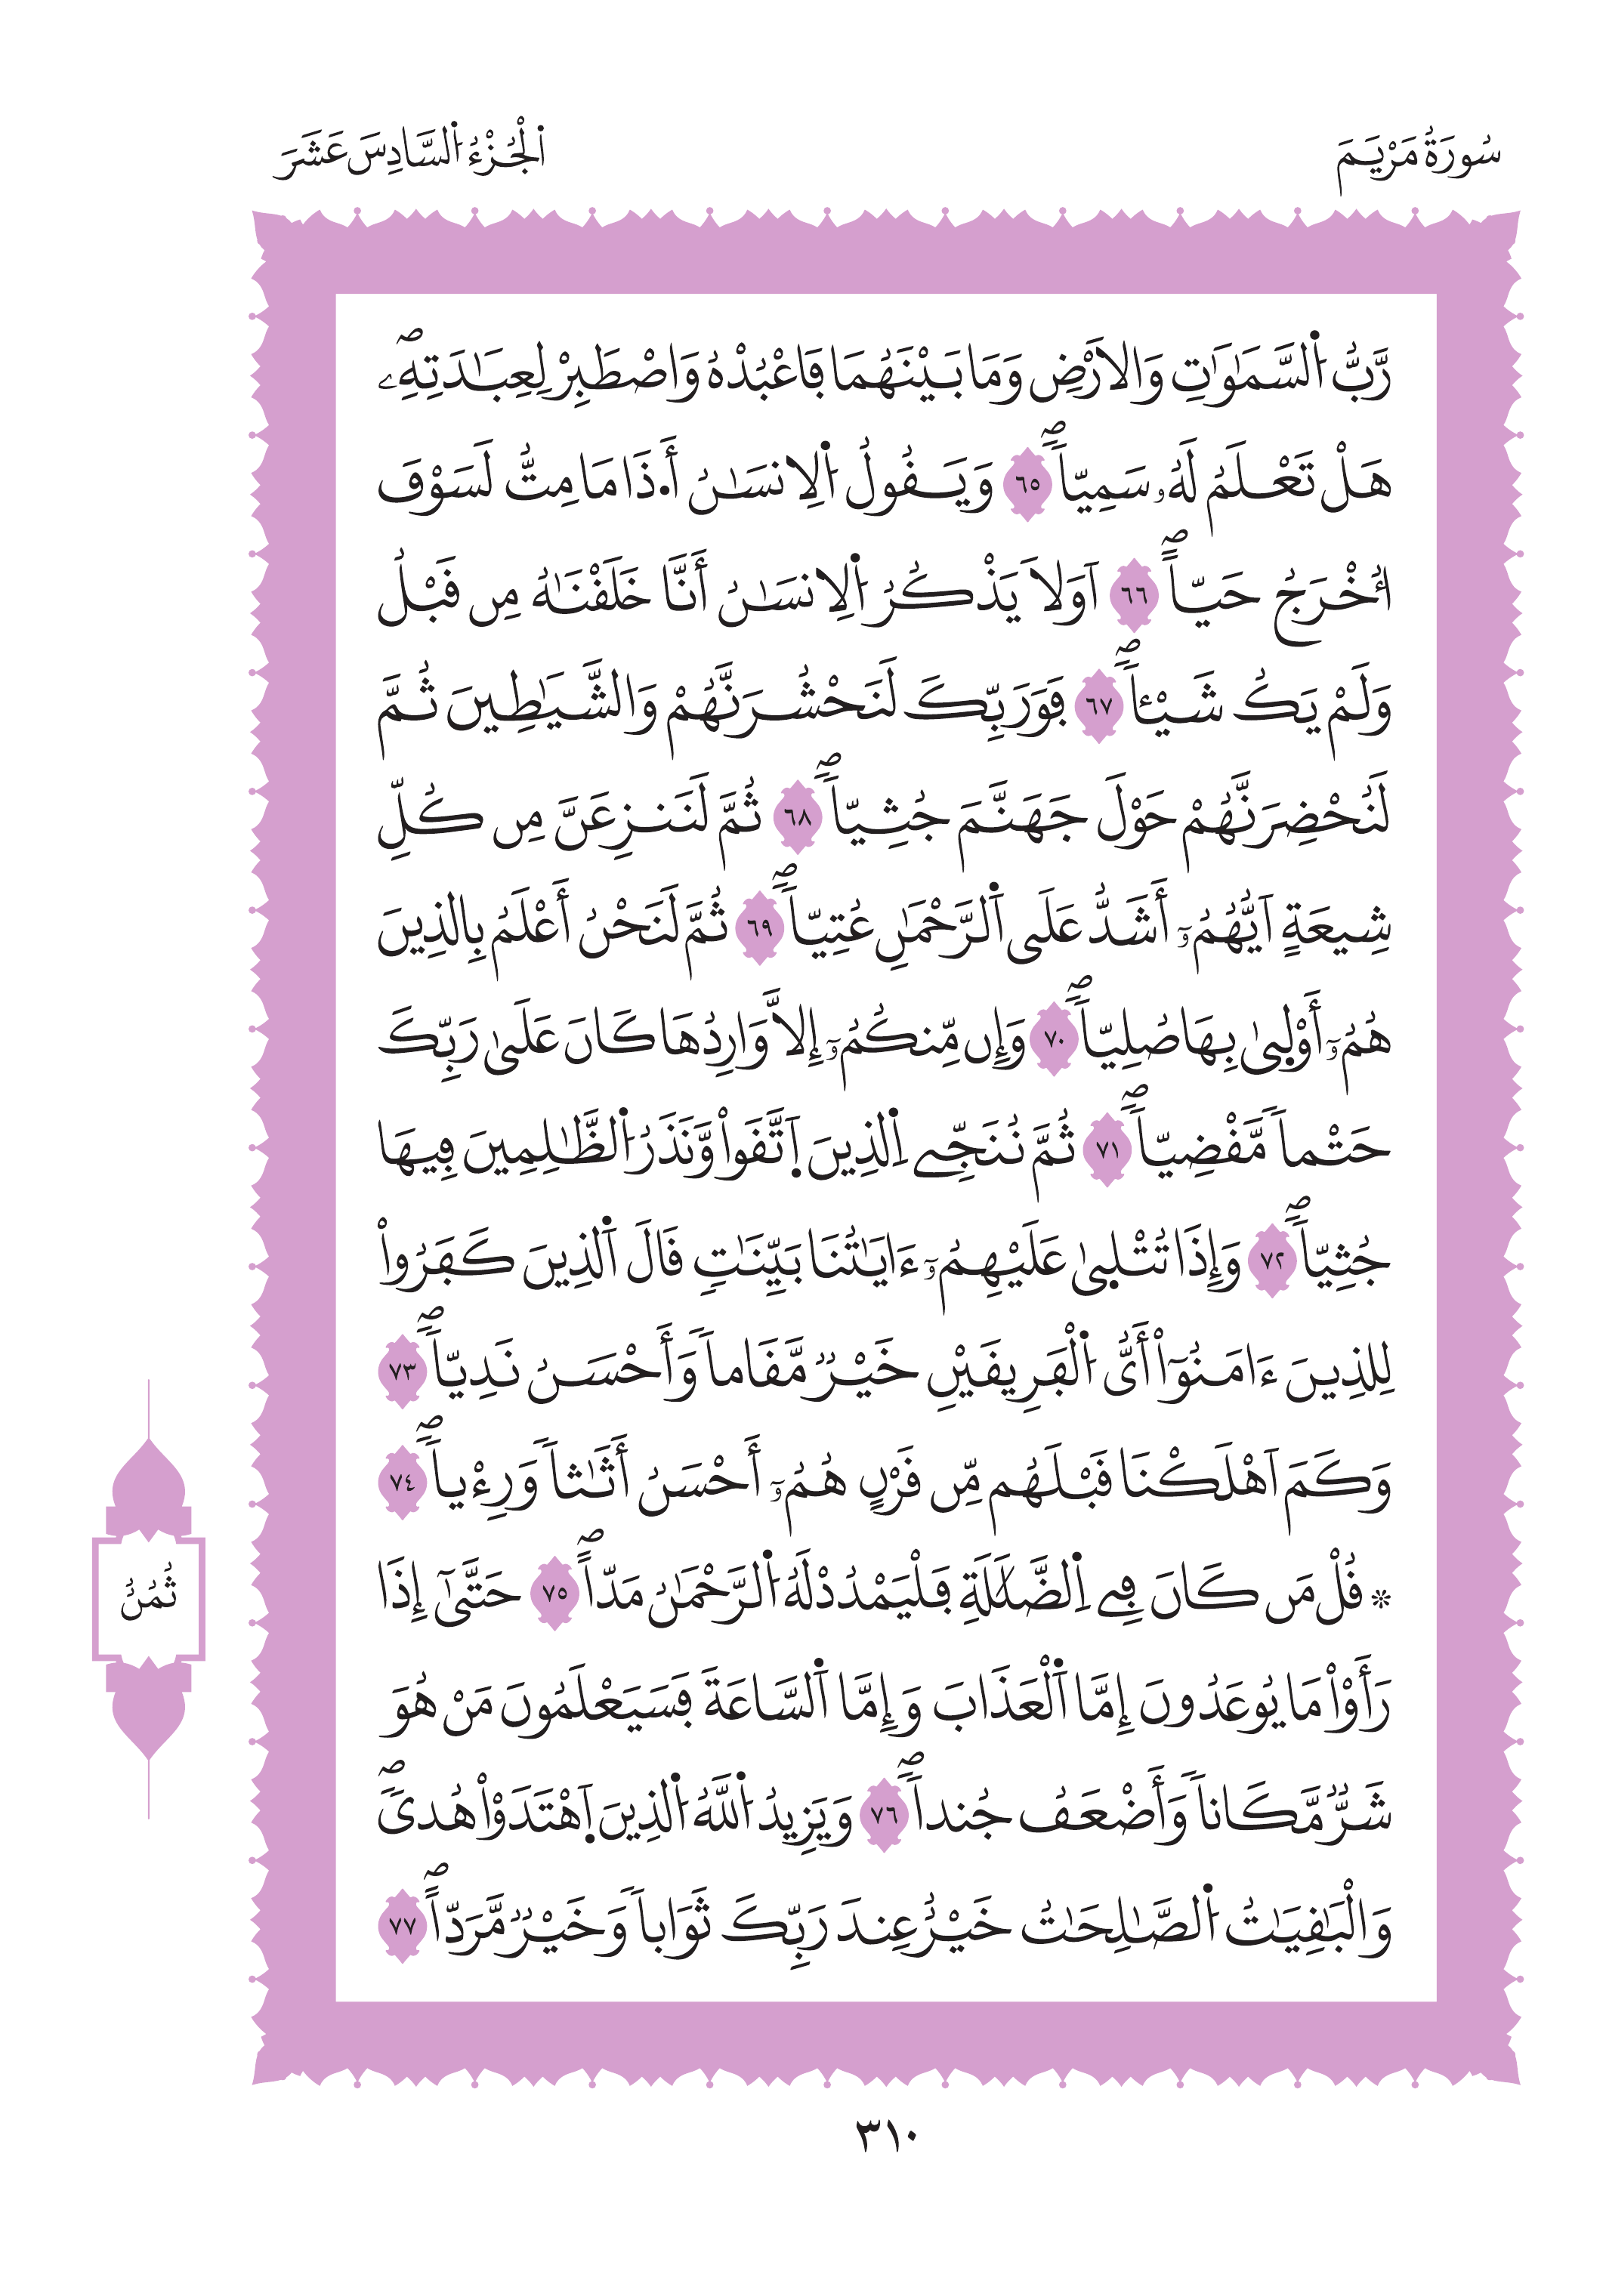 سُورَةُ مَرْيَمَ
اَلْجُزْءُ اُلسَّادِسَ عَشَرَ
رَّبُّ اُلسَّمَٰوَٰتِ وَالَارْضِ وَمَا بَيْنَهُمَا فَاعْبُدْهُ وَاصْطَبِرْ لِعِبَٰدَتِهِۦۖ
هَلْ تَعْلَمُ لَهُۥ سَمِيّاًۖ ٦٥ وَيَقُولُ اُلِانسَٰنُ أَ.ذَا مَا مِتُّ لَسَوْفَ
أُخْرَجُ حَيّاًۖ ٦٦ اَوَلَا يَذْكُرُ اُلِانسَٰنُ أَنَّا خَلَقْنَٰهُ مِن قَبْلُ
وَلَمْ يَكُ شَيْـٔاًۖ ٦٧ فَوَرَبِّكَ لَنَحْشُرَنَّهُمْ وَالشَّيَٰطِينَ ثُمَّ
لَنُحْضِرَنَّهُمْ حَوْلَ جَهَنَّمَ جُثِيّاًۖ ٦٨ ثُمَّ لَنَنزِعَنَّ مِن كُلِّ
شِيعَةٍ اَيُّهُمُۥٓ أَشَدُّ عَلَى اَلرَّحْمَٰنِ عُتِيّاًۖ ٦٩ ثُمَّ لَنَحْنُ أَعْلَمُ بِالذِينَ
هُمُۥٓ أَوْل۪ىٰ بِهَا صُلِيّاًۖ ٧٠ وَإِن مِّنكُمُۥٓ إِلَّا وَارِدُهَا كَانَ عَلَىٰ رَبِّكَ
حَتْماً مَّقْضِيّاًۖ ٧١ ثُمَّ نُنَجِّے اِلذِينَ اَ۪تَّقَواْ وَّنَذَرُ اُلظَّٰلِمِينَ فِيهَا
جُثِيّاًۖ ٧٢ وَإِذَا تُتْل۪ىٰ عَلَيْهِمُۥٓ ءَايَٰتُنَا بَيِّنَٰتٖ قَالَ اَلذِينَ كَفَرُواْ
لِلذِينَ ءَامَنُوٓاْ أَيُّ اُلْفَرِيقَيْنِ خَيْرٞ مَّقَاماً وَأَحْسَنُ نَدِيّاًۖ ٧٣
وَكَمَ اَهْلَكْنَا قَبْلَهُم مِّن قَرْنٍ هُمُۥٓ أَحْسَنُ أَثَٰثاً وَرِءْياًۖ ٧٤
* قُلْ مَن كَانَ فِے اِلضَّلَٰلَةِ فَلْيَمْدُدْ لَهُ اُلرَّحْمَٰنُ مَدّاًۖ ٧٥ حَتَّىٰٓ إِذَا
رَأَوْاْ مَا يُوعَدُونَ إِمَّا اَلْعَذَابَ وَإِمَّا اَلسَّاعَةَ فَسَيَعْلَمُونَ مَنْ هُوَ
شَرّٞ مَّكَاناً وَأَضْعَفُ جُنداًۖ ٧٦ وَيَزِيدُ اُللَّهُ اُلذِينَ اَ۪هْتَدَوْاْ هُدىًۖ
وَالْبَٰقِيَٰتُ اُلصَّٰلِحَٰتُ خَيْرٌ عِندَ رَبِّكَ ثَوَاباً وَخَيْرٞ مَّرَدّاًۖ ٧٧
ثُمُنُ
٣١٠